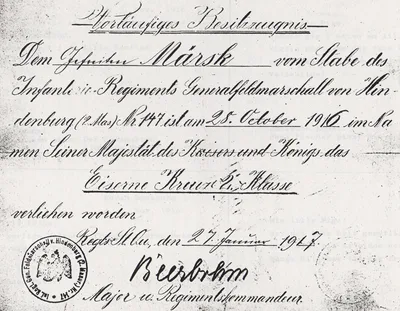 Vorläufiges Besitzzeugnis
Dem Gefreiten Märsk vom Stabe des
Infanterie-Regiments Generalfeldmarschall von Hin-
denburg (2. Mas.) Nr 147. ist am 28. October 1916 im Na-
men Seiner Majestät des Kaisers und Königs das
Eiserne Kreuz 2. Klasse
verliehen worden
Regts. St. Qu., den 27 Januar 1917.
Major u. Regimentskommandeur.